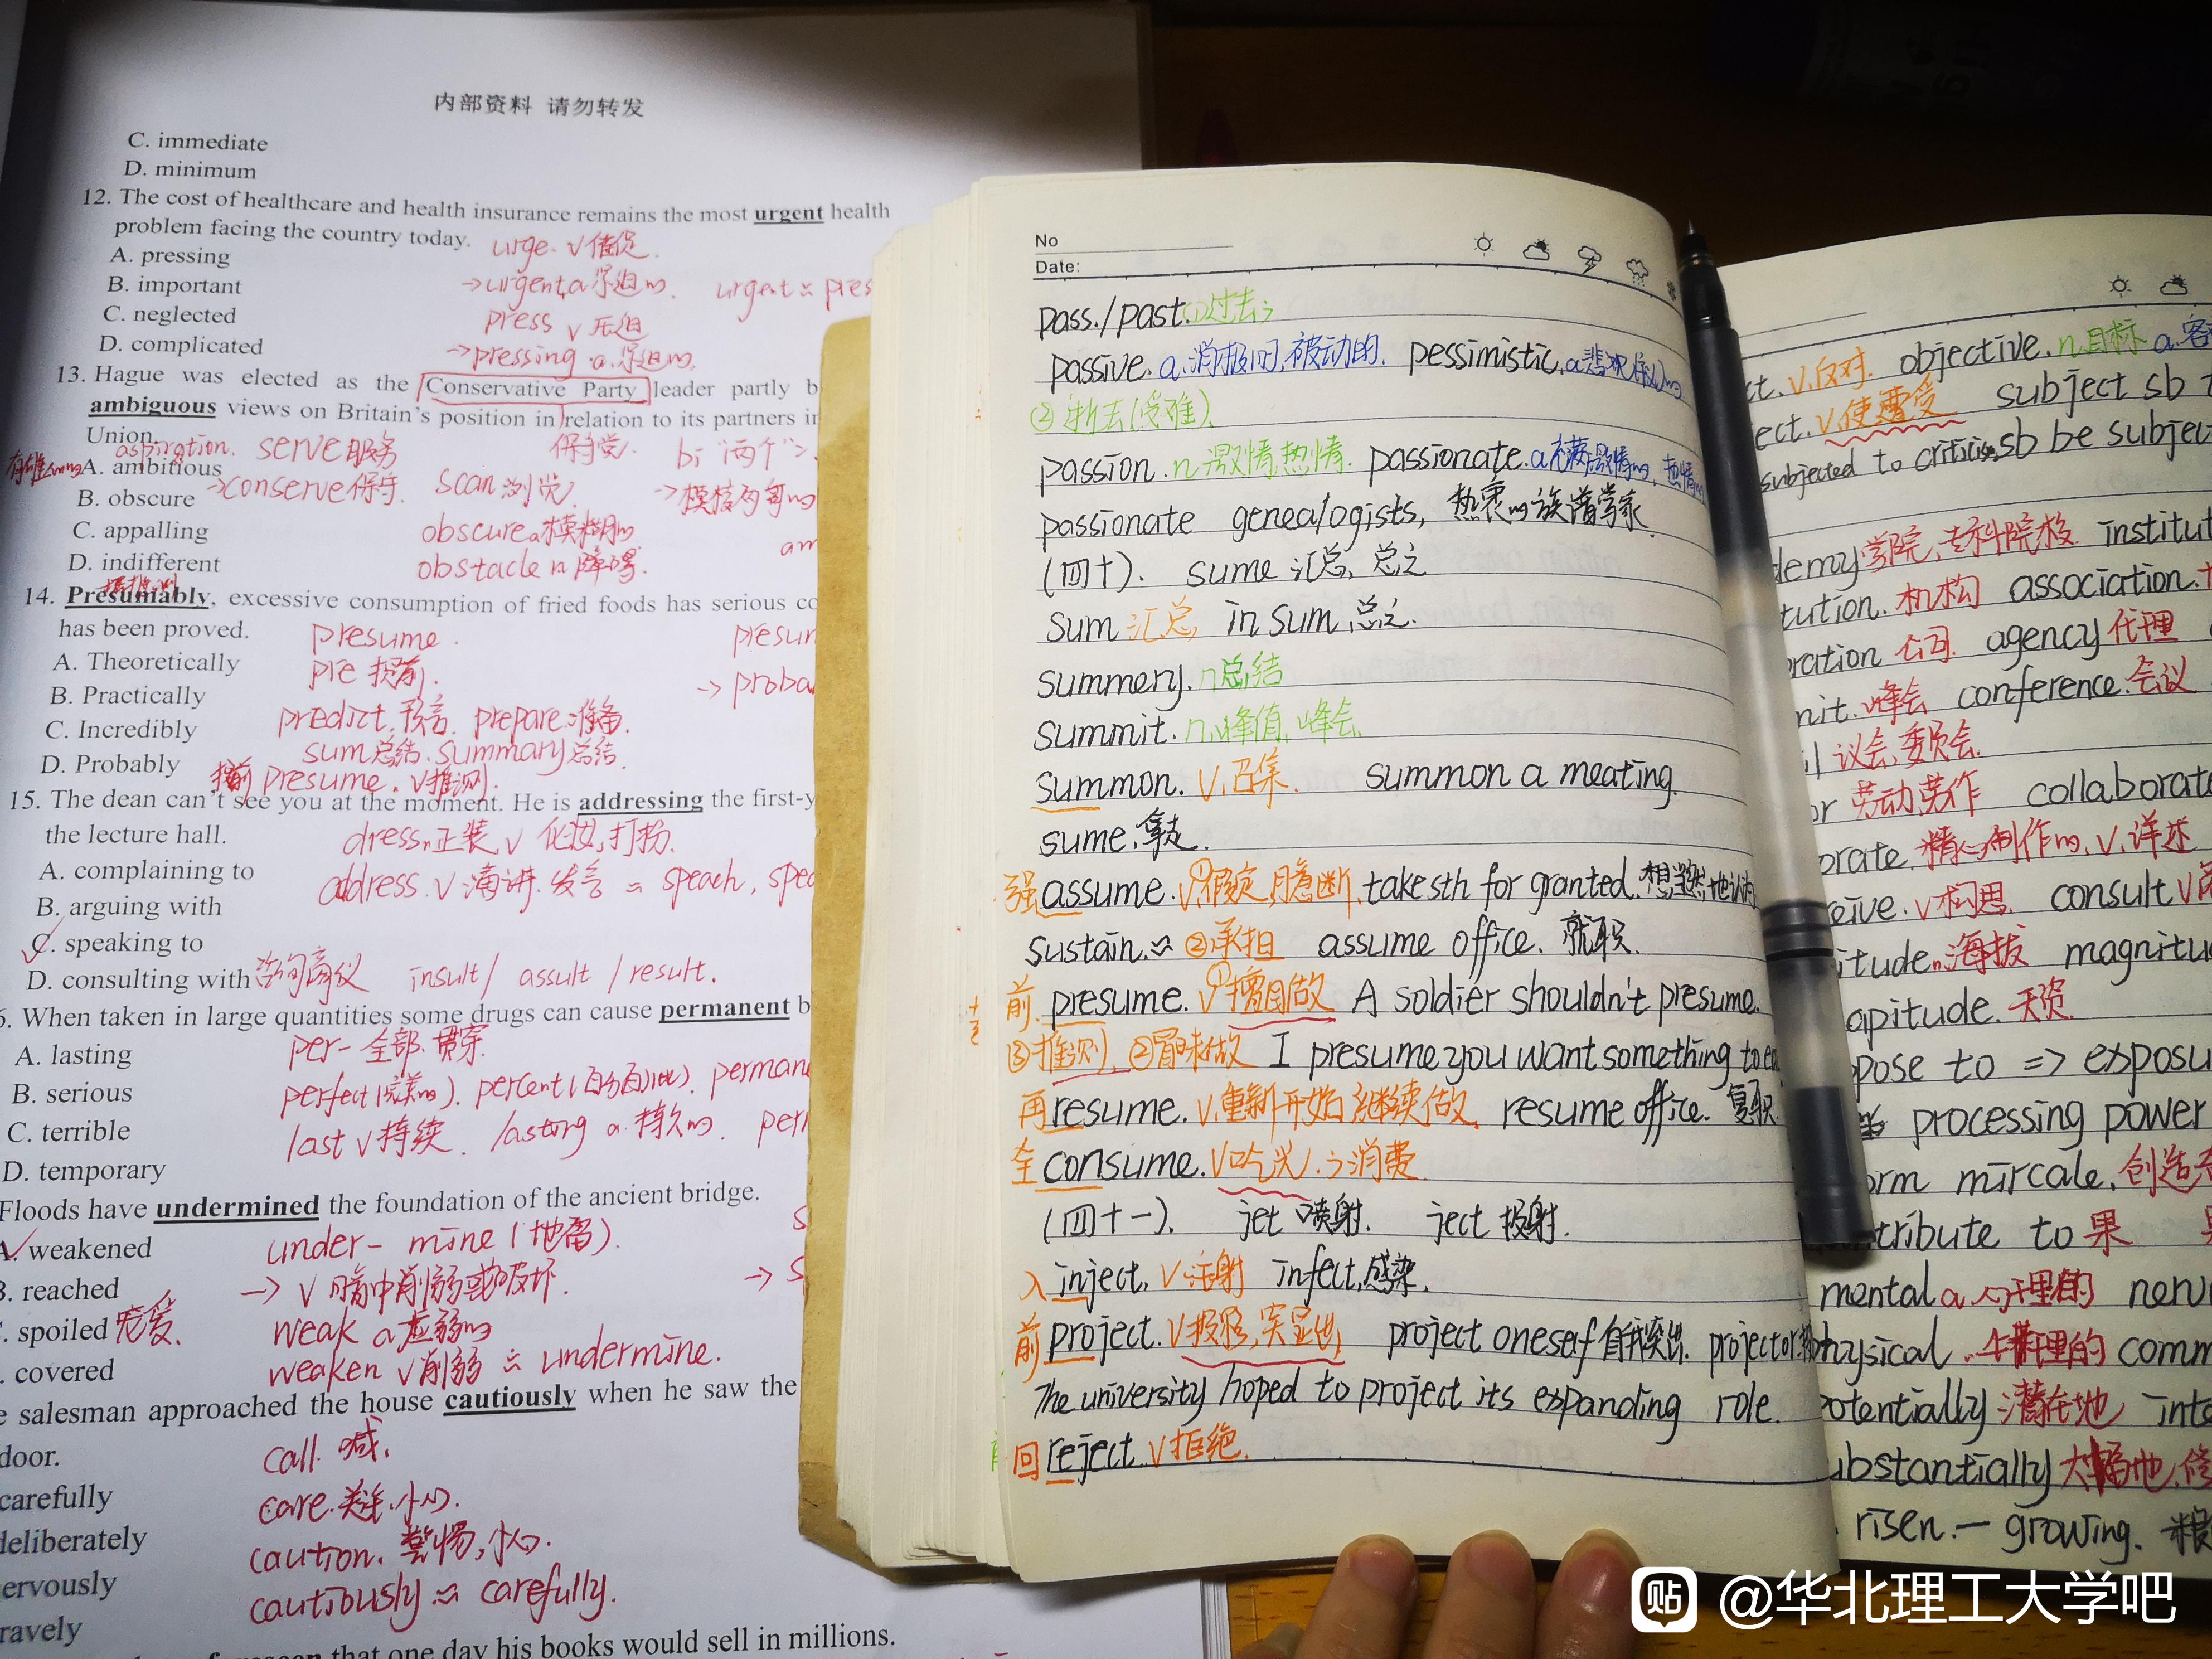 内部资料 请勿转发
C. immediate
D. minimum
12. The cost of healthcare and health insurance remains the most urgent health
problem facing the country today.
urge. v 催促
A. pressing
→urgent.a 紧迫的. urgent ≈ pres
B. important
press v 压迫
C. neglected
→pressing .a.紧迫的.
D. complicated
13. Hague was elected as the Conservative Party leader partly b
ambiguous views on Britain's position in relation to its partners in
Union.
aspiration. serve 服务 保守党. bi "两个"
A. ambitious
→conserve 保守. scan 浏览. →模棱两可的
B. obscure
obscure a 模糊的
C. appalling
am
obstacle n 障碍.
D. indifferent
14. Presumably, excessive consumption of fried foods has serious co
has been proved.
presume. presum
A. Theoretically
pre 提前. → proba
B. Practically
predict.预言. prepare.准备.
C. Incredibly
sum 总结. summary 总结.
D. Probably
提前 presume. v 推测.
15. The dean can't see you at the moment. He is addressing the first-y
the lecture hall.
dress.n 正装 v 化妆,打扮.
A. complaining to
address. v 演讲.发言 ≈ speach, spea
B. arguing with
C. speaking to
D. consulting with 咨询商议 insult/ assult /result.
6. When taken in large quantities some drugs can cause permanent b
per- 全部.贯穿
A. lasting
perfect(完美的). percent(百分百比). permane
B. serious
last v 持续. lasting a.持久的. perm
C. terrible
D. temporary
Floods have undermined the foundation of the ancient bridge.
under- mine(地雷).
A. weakened
→ v 暗中削弱或破坏.
B. reached
weak a 虚弱的
. spoiled 宠爱.
weaken v 削弱 ≈ undermine.
. covered
e salesman approached the house cautiously when he saw the
door.
call. 喊.
carefully
care.关注.小心.
deliberately
caution. 警惕,小心.
ervously
cautiously ≈ carefully.
ravely
foreseen that one day his books would sell in millions.
No
Date:
pass./past.①过去;
passive. a.消极的,被动的. pessimistic.a悲观
②逝去(受难).
passion.n.激情,热情. passionate.a充满激情的,热情的
passionate genealogists, 热衷的族谱学家
(四十). sume 汇总, 总之
Sum 汇总, in sum 总之.
summery. n总结
Summit. n.峰值,峰会
summon. v.召集. summon a meating
sume.拿走.
强 assume. v.①假定,臆断, take sth for granted. 想当然地认为
sustain. ≈ ②承担 assume office. 就职.
前. presume. v①擅自做 A soldier shouldn't presume.
③推测.②冒昧做 I presume you want something to ea
再 resume. v.重新开始 继续做. resume office. 复职
全 consume. v.吃光.;消费
(四十一). jet 喷射. ject 投射.
入 inject. v 注射 infect,感染.
前 project. v投影,突显出, project onesef 自我突出. projector
The university hoped to project its expanding role.
回 reject. v 拒绝.
ct. v.反对. objective. n.目标 a.客
ect. v.使遭受 subject sb t
subjected to criticism sb be subjec
demy 学院,专科院校 institut
tution. 机构 association.
oration 公司. agency 代理
mit. 峰会 conference.会议
il 议会,委员会.
or 劳动,劳作 collaborat
orate. 精心制作的, v.详述
eive. v构思 consult v
itude.n.海拔 magnitu
apitude. 天资
pose to => exposu
processing power
orm mircale. 创造
tribute to 果
mental a.心理的 nerv
hysical. 生理的 comm
otentially 潜在地 inte
ubstantially 大幅地,
risen. — growing.
贴 @华北理工大学吧